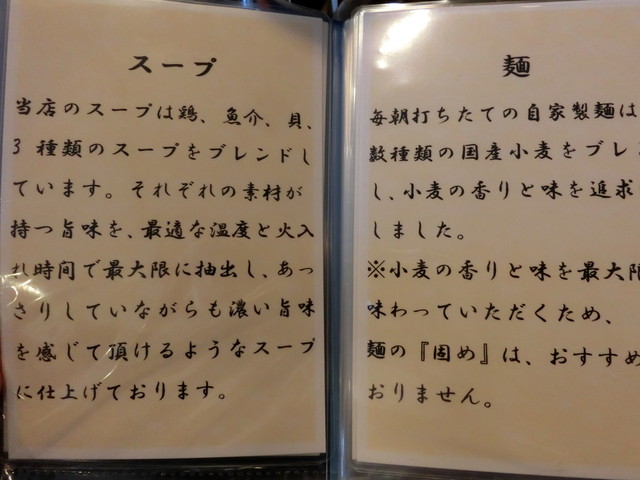 スープ
当店のスープは鶏、魚介、貝、
3種類のスープをブレンドし
ています。それぞれの素材が
持つ旨味を、最適な温度と火入
れ時間で最大限に抽出し、あっ
さりしていながらも濃い旨味
を感じて頂けるようなスープ
に仕上げております。
麺
毎朝打ちたての自家製麺は
数種類の国産小麦をブレ
し、小麦の香りと味を追求
しました。
※小麦の香りと味を最大限
味わっていただくため、
麺の『固め』は、おすすめ
おりません。